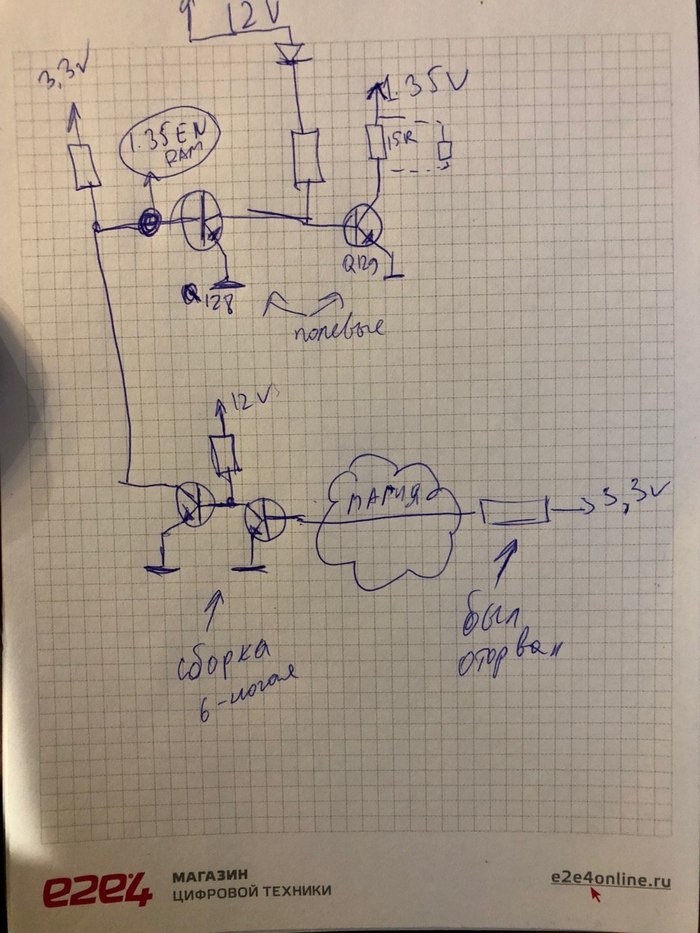 12V
3,3V
1.35V
1.35EN
RAM
15R
Q128
Q129
полевые
12V
МАГИЯ
3,3V
сборка
6-ногая
был
оторван
e2e4
МАГАЗИН
ЦИФРОВОЙ ТЕХНИКИ
e2e4online.ru